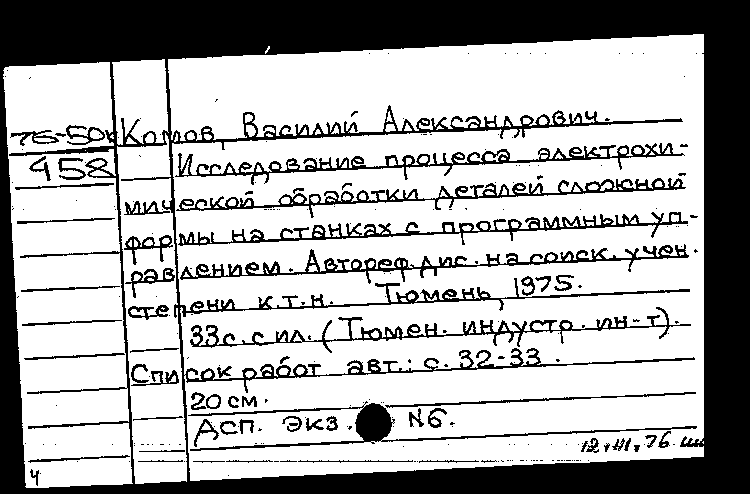 75-50к Комов, Василий Александрович.
458 Исследование процесса электрохи-
мической обработки деталей сложной
формы на станках с программным уп-
равлением. Автореф. дис. на соиск. учен.
степени к.т.н. Тюмень, 1975.
33с. с ил. (Тюмен. индустр. ин-т).
Список работ авт.: с. 32-33.
20 см.
ДСП. Экз. N6.
12.III.76
ч